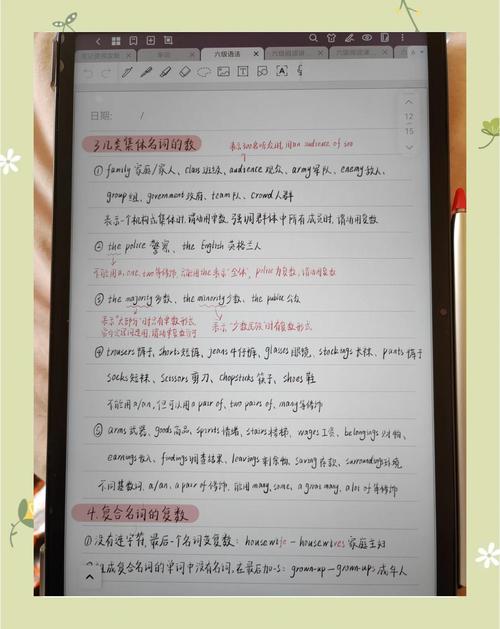 六级语法
日期: /
12
15
3.几类集体名词的数
表示500名听众时,用an audience of 500
① family 家庭/家人、class 班级、audience 观众、army 军队、enemy 敌人、
group 组、government 政府、team 队、crowd 人群
表示一个机构或集体时,谓动用单数,强调群体中所有成员时,谓动用复数
② the police 警察、the English 英格兰人
不能用a、one、two等修饰,只能用the表示"全体",police为复数,谓动用复数
③ the majority 多数、the minority 少数、the public 公众
表示"大部分"时只有单数形式
表示"少数民族"时有复数形式
④ trousers 裤子、shorts 短裤、jeans 牛仔裤、glasses 眼镜、stockings 长袜、pants 裤子
socks 短袜、scissors 剪刀、chopsticks 筷子、shoes 鞋
不能用a/an,但可以用a pair of、two pairs of、many等修饰
⑤ arms 武器、goods 商品、spirits 情绪、stairs 楼梯、wages 工资、belongings 财物、
earnings 收入、findings 调查结果、leavings 剩余物、saving 存款、surroundings 环境
不同基数词、a/an、a pair of 修饰,能用many、some、a great many、a lot of 等修饰
4.复合名词的复数
① 没有连字符,最后一个名词变复数: housewife — housewives 家庭主妇
组成复合名词的单词中没有名词,在最后加-s: grown-up — grown-ups 成年人